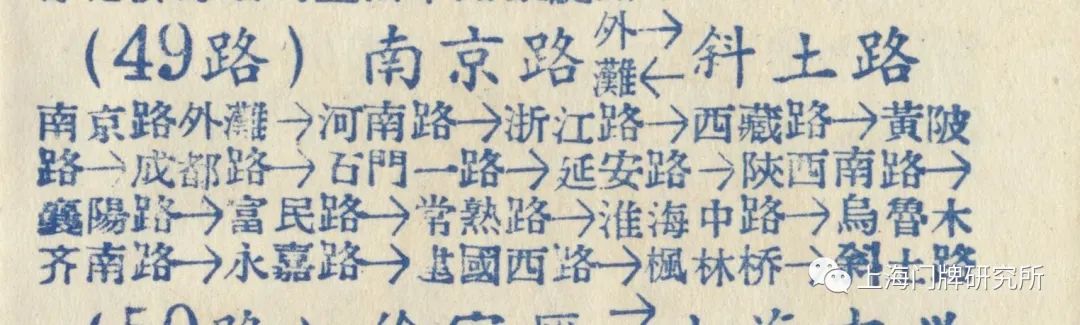 (49路) 南京路外灘→←斜土路
南京路外灘→河南路→浙江路→西藏路→黃陂
路→成都路→石門一路→延安路→陝西南路→
襄陽路→富民路→常熟路→淮海中路→烏魯木
齐南路→永嘉路→建國西路→楓林桥→斜土路
上海门牌研究所
(50路)